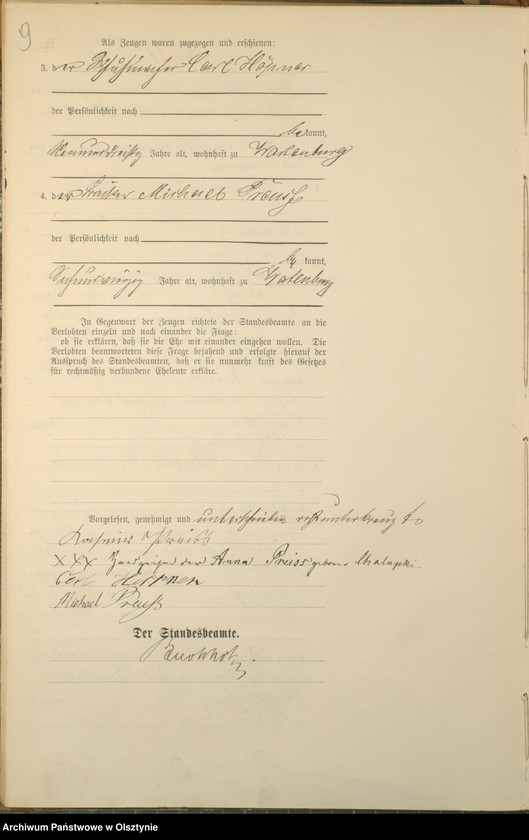 9
Als Zeugen waren zugezogen und erschienen:
3. der Schuhmacher Carl Höpner
der Persönlichkeit nach
be kannt,
Jahre alt, wohnhaft zu Wartenburg
4. der Michael Preuß
der Persönlichkeit nach
be kannt,
Jahre alt, wohnhaft zu Wartenburg
In Gegenwart der Zeugen richtete der Standesbeamte an die
Verlobten einzeln und nach einander die Frage:
ob sie erklären, daß sie die Ehe mit einander eingehen wollen. Die
Verlobten beantworteten diese Frage bejahend und erfolgte hierauf der
Ausspruch des Standesbeamten, daß er sie nunmehr kraft des Gesetzes
für rechtmäßig verbundene Eheleute erkläre.
Vorgelesen, genehmigt und unterschrieben resp. unterkreuzt
Preiss
XXX Handzeichen der Anna Preiss geborne Chalupki.
Carl Heppner
Michael Preuß
Der Standesbeamte.
Archiwum Państwowe w Olsztynie